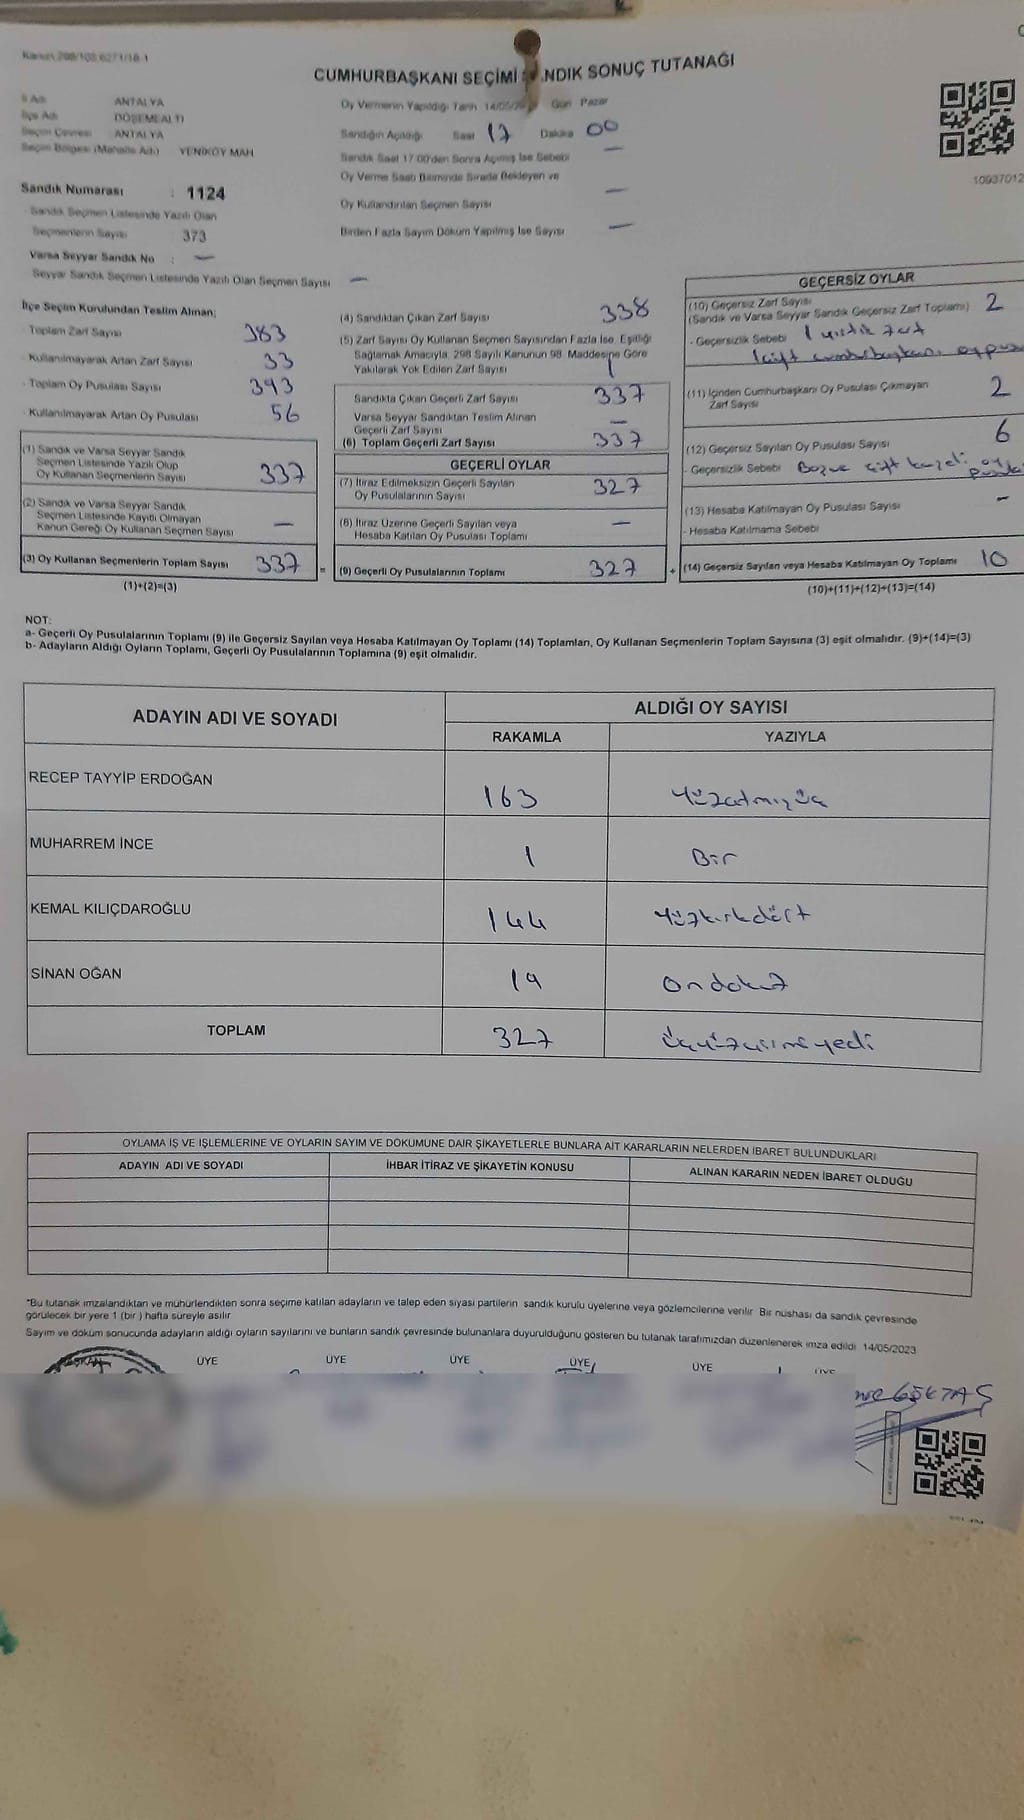 Kanun 298/105 6271/18-1
CUMHURBAŞKANI SEÇİMİ NDIK SONUÇ TUTANAĞI
İl Adı ANTALYA
İlçe Adı DÖŞEMEALTI
Seçim Çevresi ANTALYA
Seçim Bölgesi (Mahalle Adı) YENİKÖY MAH
Sandık Numarası : 1124
Sandık Seçmen Listesinde Yazılı Olan
Seçmenlerin Sayısı 373
Varsa Seyyar Sandık No : —
Seyyar Sandık Seçmen Listesinde Yazılı Olan Seçmen Sayısı —
Oy Vermenin Yapıldığı Tarih 14/05/20 Gün Pazar
Sandığın Açıldığı Saat 17 Dakika 00
Sandık Saat 17:00'den Sonra Açılmış İse Sebebi —
Oy Verme Saati Bitiminde Sırada Bekleyen ve
Oy Kullandırılan Seçmen Sayısı —
Birden Fazla Sayım Döküm Yapılmış İse Sayısı —
10937012
İlçe Seçim Kurulundan Teslim Alınan;
Toplam Zarf Sayısı 383
- Kullanılmayarak Artan Zarf Sayısı 33
- Toplam Oy Pusulası Sayısı 393
- Kullanılmayarak Artan Oy Pusulası 56
(1) Sandık ve Varsa Seyyar Sandık
Seçmen Listesinde Yazılı Olup
Oy Kullanan Seçmenlerin Sayısı 337
(2) Sandık ve Varsa Seyyar Sandık
Seçmen Listesinde Kayıtlı Olmayan
Kanun Gereği Oy Kullanan Seçmen Sayısı —
(3) Oy Kullanan Seçmenlerin Toplam Sayısı 337
(1)+(2)=(3)
(4) Sandıktan Çıkan Zarf Sayısı 338
(5) Zarf Sayısı Oy Kullanan Seçmen Sayısından Fazla İse, Eşitliği
Sağlamak Amacıyla, 298 Sayılı Kanunun 98. Maddesine Göre
Yakılarak Yok Edilen Zarf Sayısı 1
Sandıkta Çıkan Geçerli Zarf Sayısı 337
Varsa Seyyar Sandıktan Teslim Alınan
Geçerli Zarf Sayısı —
(6) Toplam Geçerli Zarf Sayısı 337
GEÇERLİ OYLAR
(7) İtiraz Edilmeksizin Geçerli Sayılan
Oy Pusulalarının Sayısı 327
(8) İtiraz Üzerine Geçerli Sayılan veya
Hesaba Katılan Oy Pusulası Toplamı —
= (9) Geçerli Oy Pusulalarının Toplamı 327
GEÇERSİZ OYLAR
(10) Geçersiz Zarf Sayısı
(Sandık ve Varsa Seyyar Sandık Geçersiz Zarf Toplamı) 2
- Geçersizlik Sebebi 1 yırtık zarf
1 çift cumhurbaşkanı oy
(11) İçinden Cumhurbaşkanı Oy Pusulası Çıkmayan
Zarf Sayısı 2
(12) Geçersiz Sayılan Oy Pusulası Sayısı 6
- Geçersizlik Sebebi çift oy
(13) Hesaba Katılmayan Oy Pusulası Sayısı —
- Hesaba Katılmama Sebebi
+ (14) Geçersiz Sayılan veya Hesaba Katılmayan Oy Toplamı 10
(10)+(11)+(12)+(13)=(14)
NOT:
a- Geçerli Oy Pusulalarının Toplamı (9) ile Geçersiz Sayılan veya Hesaba Katılmayan Oy Toplamı (14) Toplamları, Oy Kullanan Seçmenlerin Toplam Sayısına (3) eşit olmalıdır. (9)+(14)=(3)
b- Adayların Aldığı Oyların Toplamı, Geçerli Oy Pusulalarının Toplamına (9) eşit olmalıdır.
ADAYIN ADI VE SOYADI ALDIĞI OY SAYISI
RAKAMLA YAZIYLA
RECEP TAYYİP ERDOĞAN 163 Yüzatmışüç
MUHARREM İNCE 1 Bir
KEMAL KILIÇDAROĞLU 144 Yüzkırkdört
SİNAN OĞAN 19 Ondokuz
TOPLAM 327 Üçyüzyirmiyedi
OYLAMA İŞ VE İŞLEMLERİNE VE OYLARIN SAYIM VE DÖKÜMÜNE DAİR ŞİKAYETLERLE BUNLARA AİT KARARLARIN NELERDEN İBARET BULUNDUKLARI
ADAYIN ADI VE SOYADI İHBAR İTİRAZ VE ŞİKAYETİN KONUSU ALINAN KARARIN NEDEN İBARET OLDUĞU
*Bu tutanak imzalandıktan ve mühürlendikten sonra seçime katılan adayların ve talep eden siyasi partilerin sandık kurulu üyelerine veya gözlemcilerine verilir. Bir nüshası da sandık çevresinde
görülecek bir yere 1 (bir ) hafta süreyle asılır
Sayım ve döküm sonucunda adayların aldığı oyların sayılarını ve bunların sandık çevresinde bulunanlara duyurulduğunu gösteren bu tutanak tarafımızdan düzenlenerek imza edildi 14/05/2023
BAŞKAN ÜYE ÜYE ÜYE ÜYE ÜYE ÜYE
GÖKTAŞ